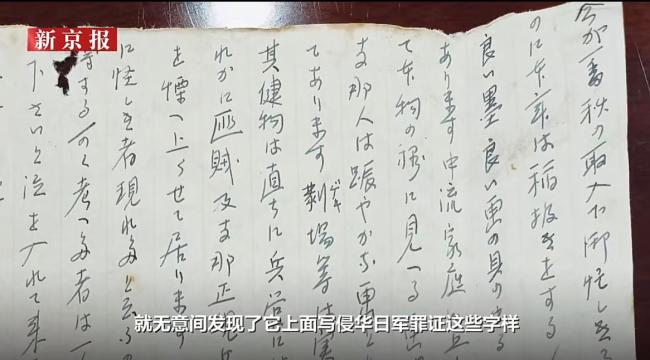 新京报
今が一番秋の取入で御忙しき
のに本家は稲扱きをする
良い墨良い画の具の
あります中流家庭
て本物の様に見へる
支那人は賑やかな画
てあります劇場等は
其建物は直ちに兵営に
れかに匪賊及支那正規
を慄へ上らせて居ります
に怪しき者現れたと云ふ
考へた者は一
下さいと泣を入れて来
就无意间发现了它上面写侵华日军罪证这些字样